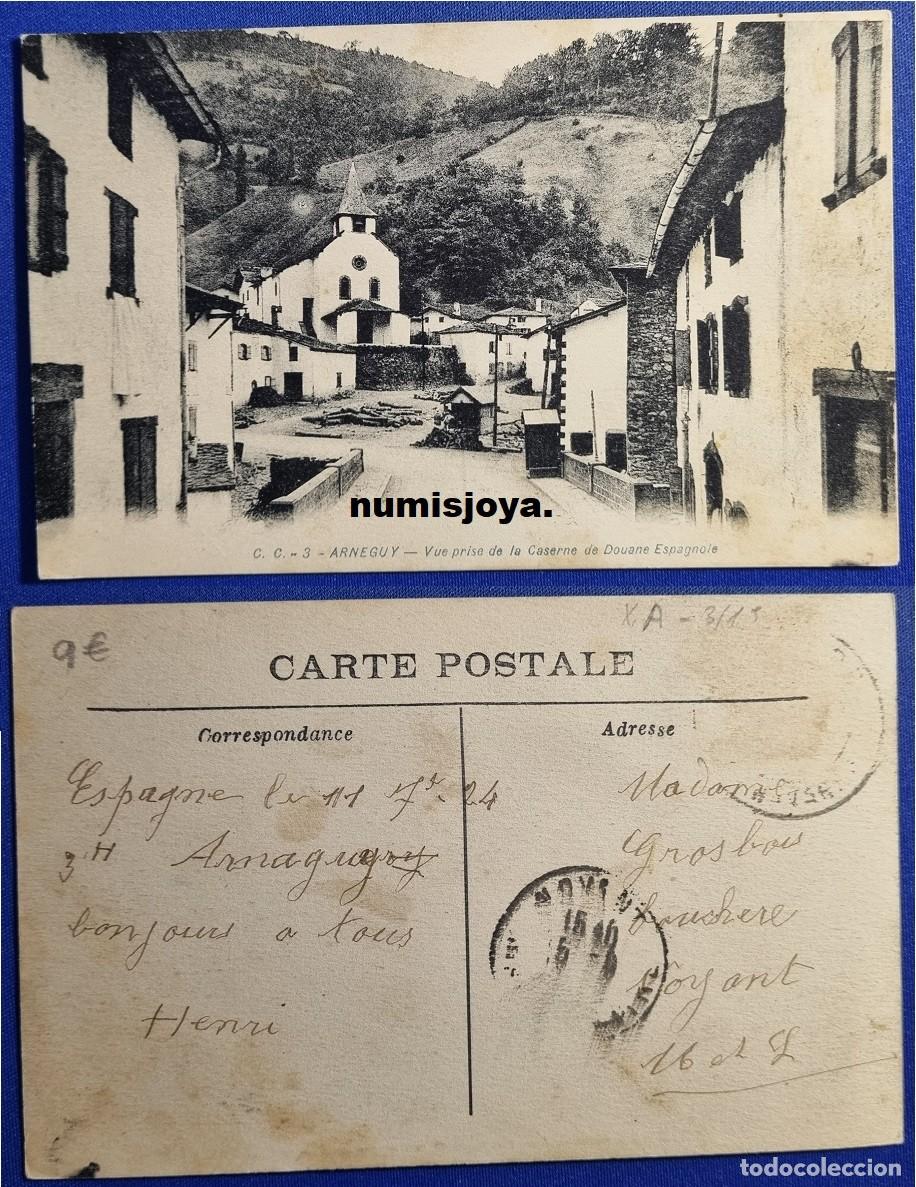 numisjoya.
C. C. - 3 - ARNEGUY — Vue prise de la Caserne de Douane Espagnole
9€
XA - 3/1
CARTE POSTALE
Correspondance
Adresse
Espagne le 11 7r 24
3H Arnagugry
bonjours a tous
Henri
Madame
Grosbois
bouchere
Noyant
M et L
NOYANT
15
todocoleccion